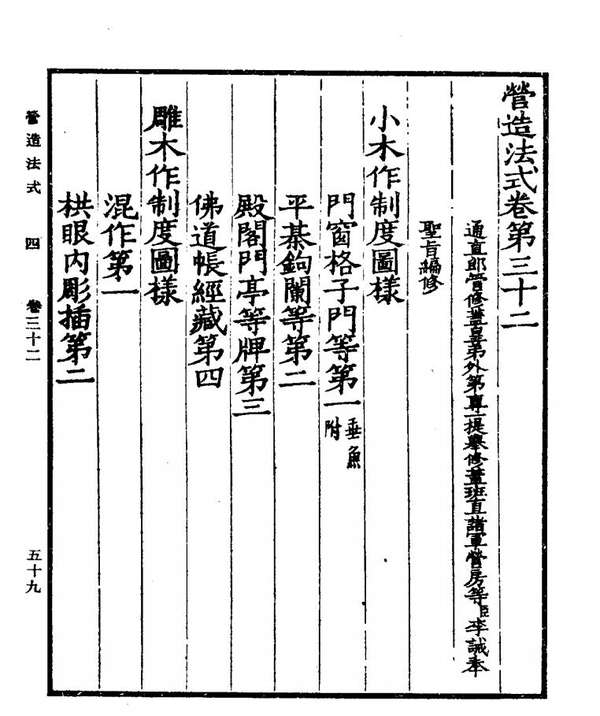 營造法式卷第三十二
通直郎管修蓋皇弟外第專一提舉修蓋班直諸軍營房等臣李誡奉
聖旨編修
小木作制度圖樣
門窗格子門等第一垂魚附
平棊鉤闌等第二
殿閣門亭等牌第三
佛道帳經藏第四
雕木作制度圖樣
混作第一
栱眼内彫插第二
營造法式 四 卷三十二 五十九